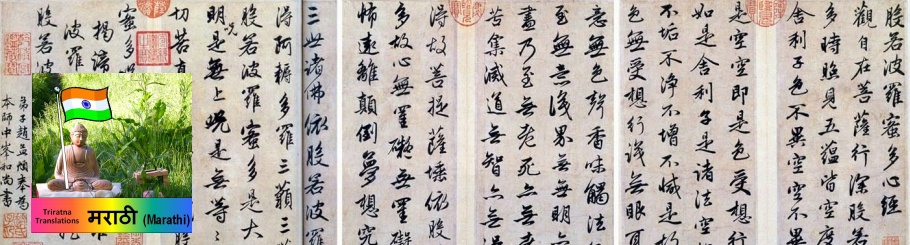 般若波羅蜜多心經
觀自在菩薩行深般若
多時照見五蘊皆空度
舍利子色不異空空不
是空即是色受想
如是舍利子是諸法空
不垢不淨不增不減是故
色無受想行識無眼耳
意無色聲香味觸法
至無意識界無無明
盡乃至無老死亦無
苦集滅道無智亦無
得故菩提薩埵依般
多故心無罣礙無罣礙
怖遠離顛倒夢想究
三世諸佛依般若波羅
得阿耨多羅三藐三
般若波羅蜜多是大
明咒是無上咒是無等
切苦
蜜多
揭諦
波羅
般若
弟子趙孟頫奉為
本師中峯和尚書
Triratna
Translations
मराठी (Marathi)